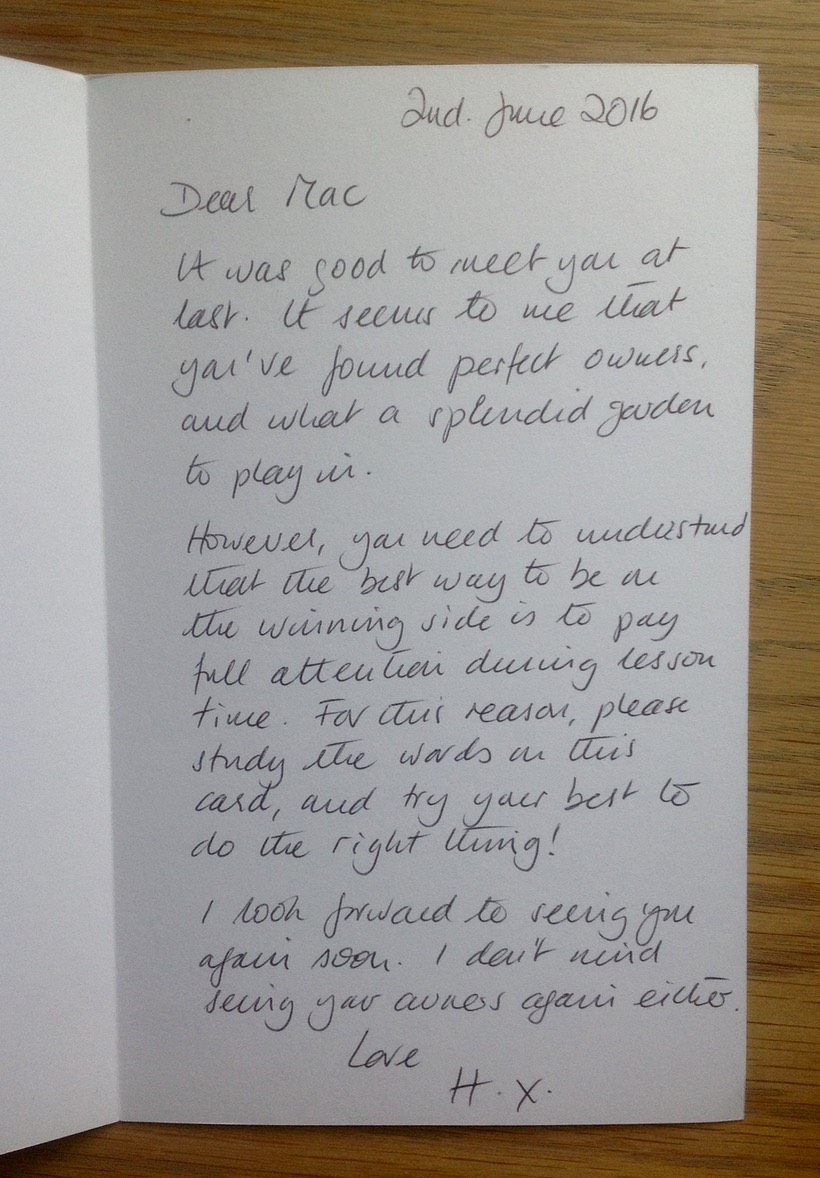 2nd. June 2016
Dear Mac
It was good to meet you at
last. It seems to me that
you've found perfect owners,
and what a splendid garden
to play in.
However, you need to understand
that the best way to be on
the winning side is to pay
full attention during lesson
time. For this reason, please
study the words on this
card, and try your best to
do the right thing!
I look forward to seeing you
again soon. I don't mind
seeing your owners again either.
Love
H. X.